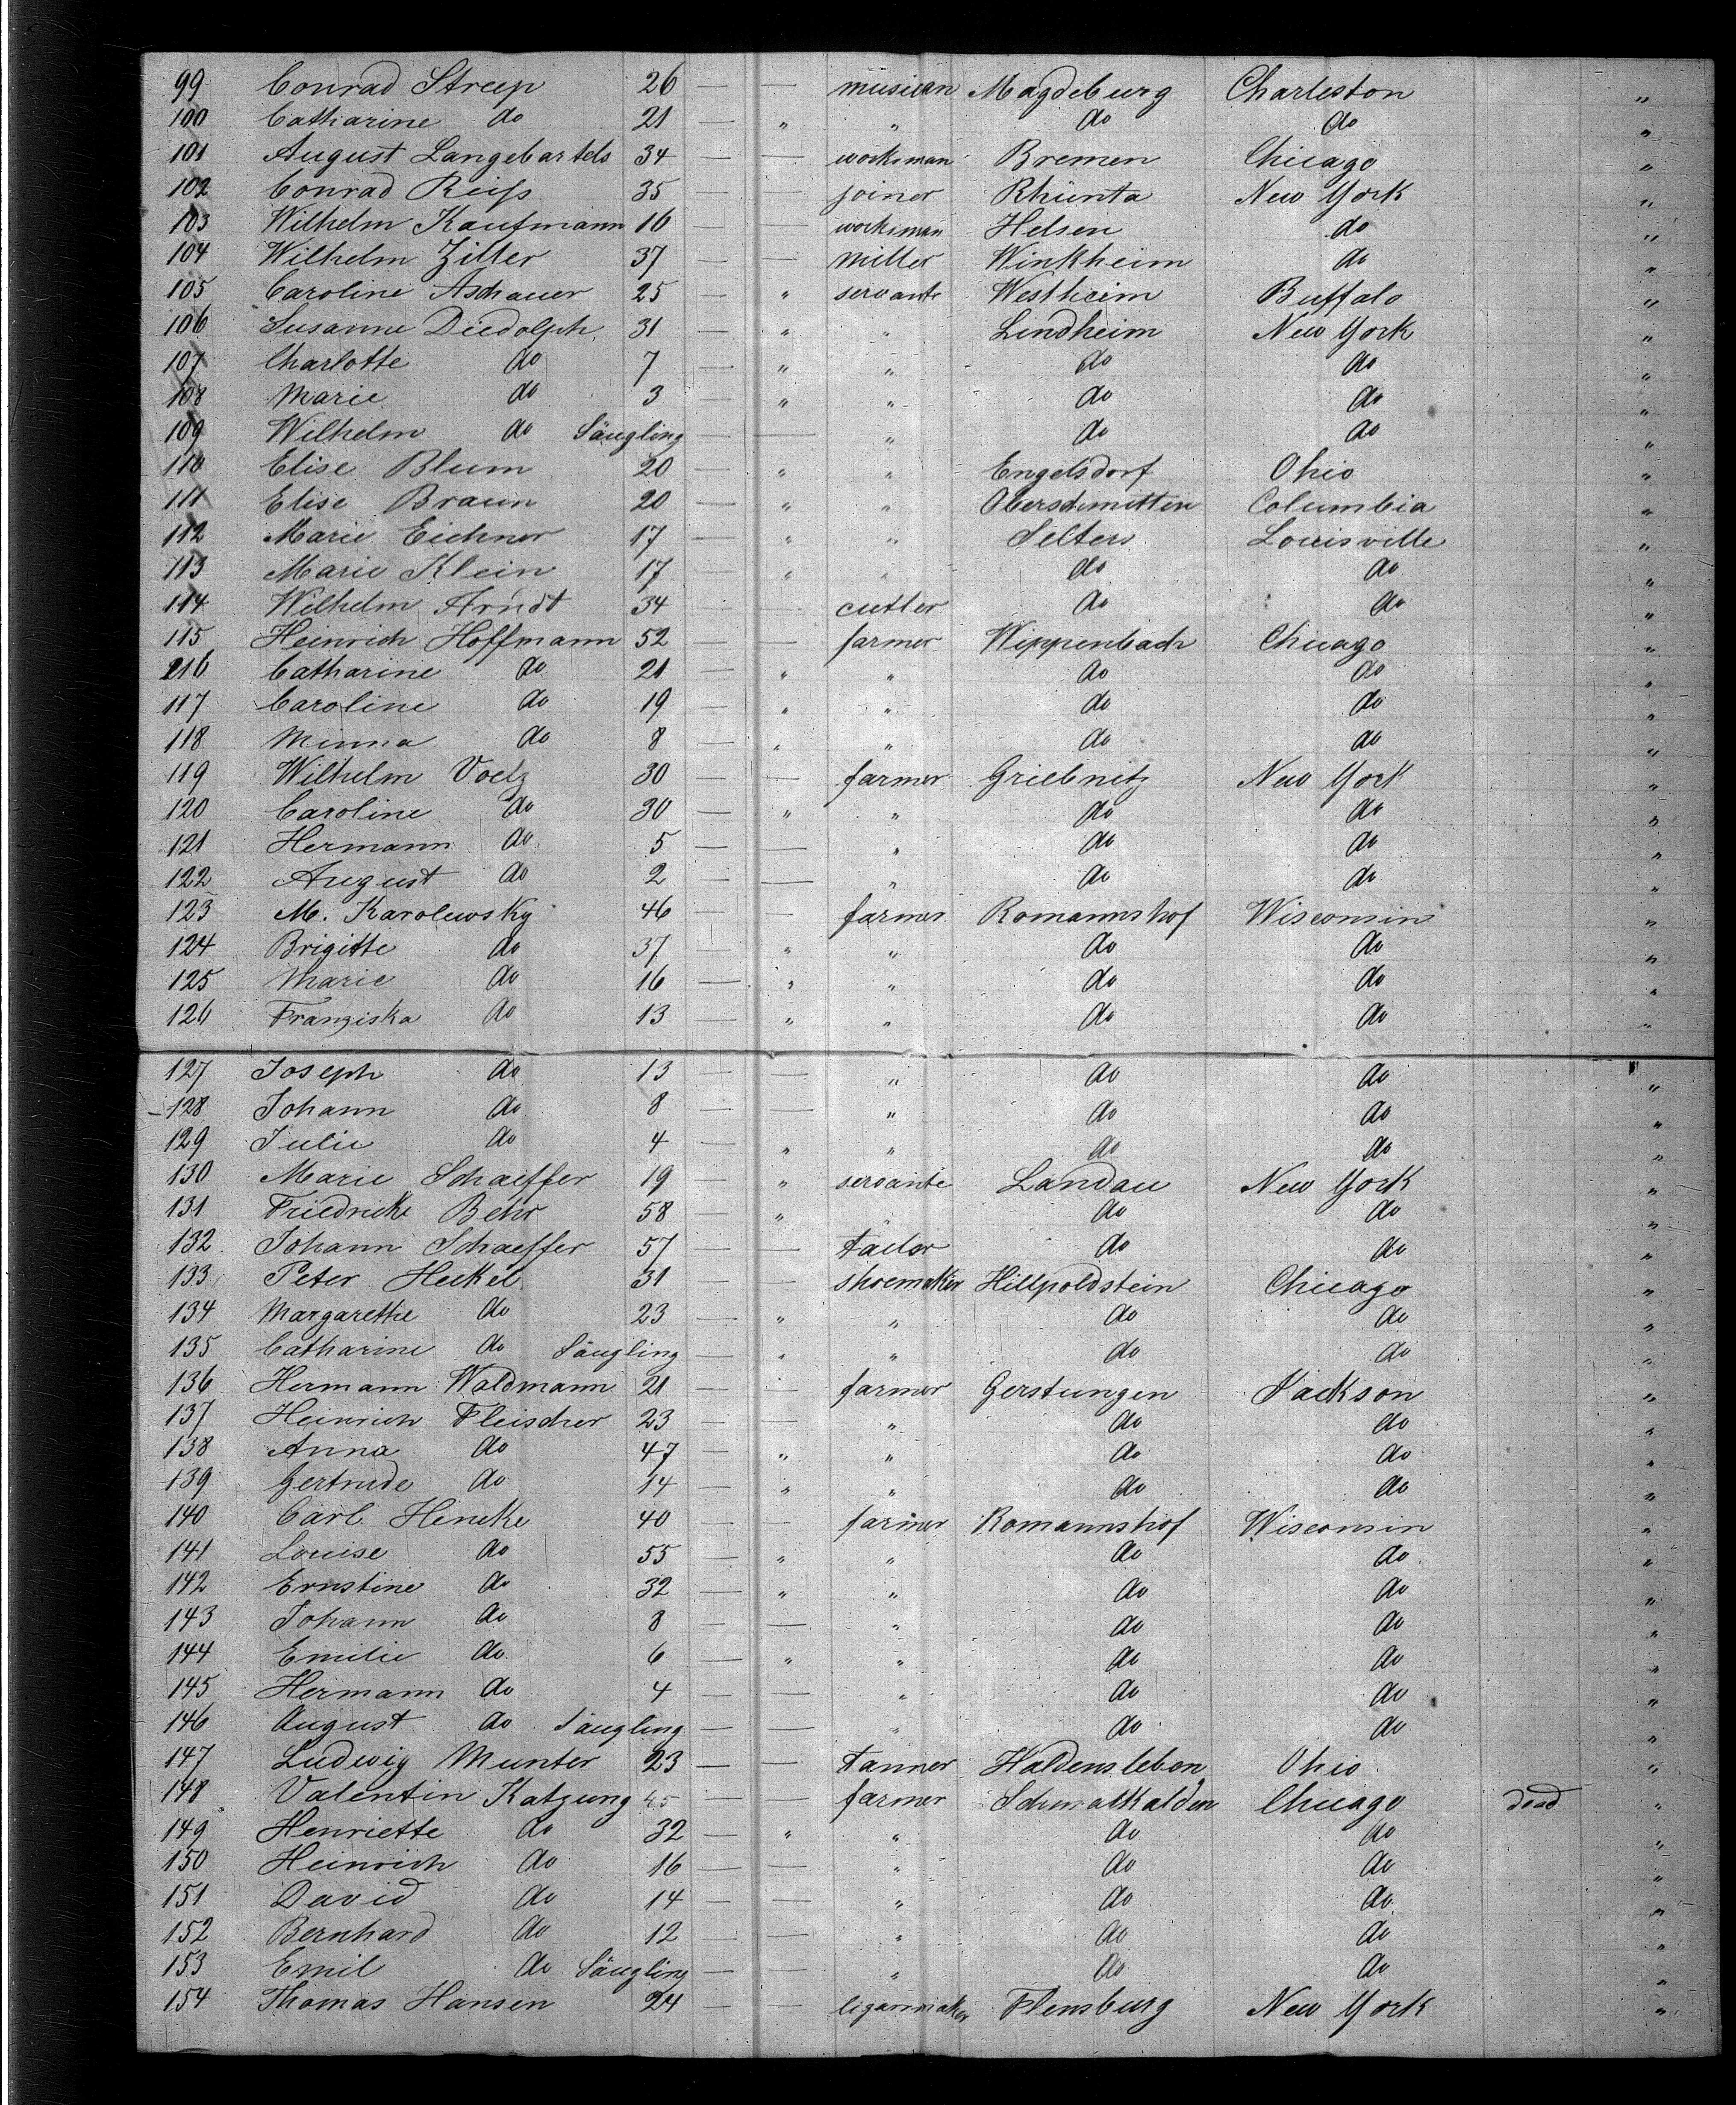 99 Conrad Streep 26 — — musican Magdeburg Charleston "
100 Catharine do 21 — " " do do "
101 August Langebartels 34 — — worksman Bremen Chicago "
102 Conrad Reiß 35 — — joiner Rhünta New York "
103 Wilhelm Kaufmann 16 — — worksman Helsen do "
104 Wilhelm Ziller 37 — — miller Winkheim do "
105 Caroline Aschauer 25 — " servante Westheim Buffalo "
106 Susanne Diedolph 31 — " " Lindheim New York "
107 Charlotte do 7 — " " do do "
108 Marie do 3 — " " do do "
109 Wilhelm do Säugling — — " do do "
110 Elise Blum 20 — " " Engelsdorf Ohio "
111 Elise Braun 20 — " " Oberschmitten Columbia "
112 Marie Eichner 17 — " " Selters Louisville "
113 Marie Klein 17 — " " do do "
114 Wilhelm Arndt 34 — — cutler do do "
115 Heinrich Hoffmann 52 — — farmer Wippenbach Chicago "
116 Catharine do 21 — " " do do "
117 Caroline do 19 — " " do do "
118 Minna do 8 — " " do do "
119 Wilhelm Voelz 30 — — farmer Griebnitz New York "
120 Caroline do 30 — " " do do "
121 Hermann do 5 — — " do do "
122 August do 2 — — " do do "
123 M. Karolewsky 46 — — farmer Romannshof Wisconsin "
124 Brigitte do 37 — " " do do "
125 Marie do 16 — " " do do "
126 Franziska do 13 — " " do do "
127 Joseph do 13 — — " do do "
128 Johann do 8 — — " do do "
129 Julie do 4 — " " do do "
130 Marie Schaeffer 19 — " servante Landau New York "
131 Friedricke Behr 58 — " " do do "
132 Johann Schaeffer 57 — — tailor do do "
133 Peter Heckel 31 — — shoemaker Hillpoldstein Chicago "
134 Margarethe do 23 — " " do do "
135 Catharine do Säugling — " " do do "
136 Hermann Waldmann 21 — — farmer Gerstungen Jackson "
137 Heinrich Fleischer 23 — — " do do "
138 Anna do 47 — " " do do "
139 Gertrude do 14 — " " do do "
140 Carl Hencke 40 — — farmer Romannshof Wisconsin "
141 Louise do 55 — " " do do "
142 Ernstine do 32 — " " do do "
143 Johann do 8 — — " do do "
144 Emilie do 6 — " " do do "
145 Hermann do 4 — — " do do "
146 August do Säugling — — " do do "
147 Ludewig Munter 23 — — tanner Haldensleben Ohio "
148 Valentin Katzung 45 — — farmer Schmalkalden Chicago dead "
149 Henriette do 32 — " " do do "
150 Heinrich do 16 — — " do do "
151 David do 14 — — " do do "
152 Bernhard do 12 — — " do do "
153 Emil do Säugling — — " do do "
154 Thomas Hansen 24 — — Flensburg New York "